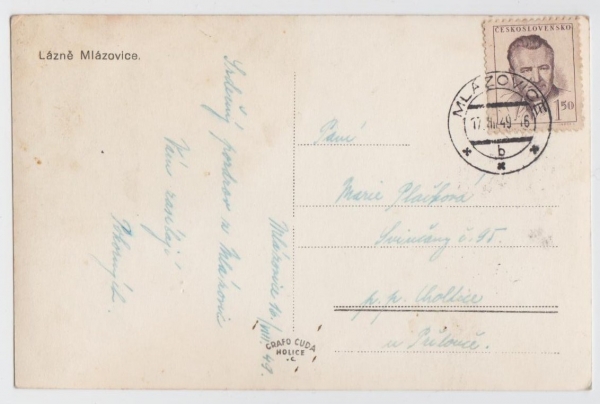 Lázně Mlázovice.
ČESKOSLOVENSKO
1.50
MLÁZOVICE
17. VIII. 49 -16
b
Srdečný pozdrav z Mlázovic
Vám zasílají
Mlázovice 16/VIII. 49.
Paní
Marie
Svinčany č. 95.
p. p. Choltice
u Přelouče.
GRAFO ČUDA
HOLICE